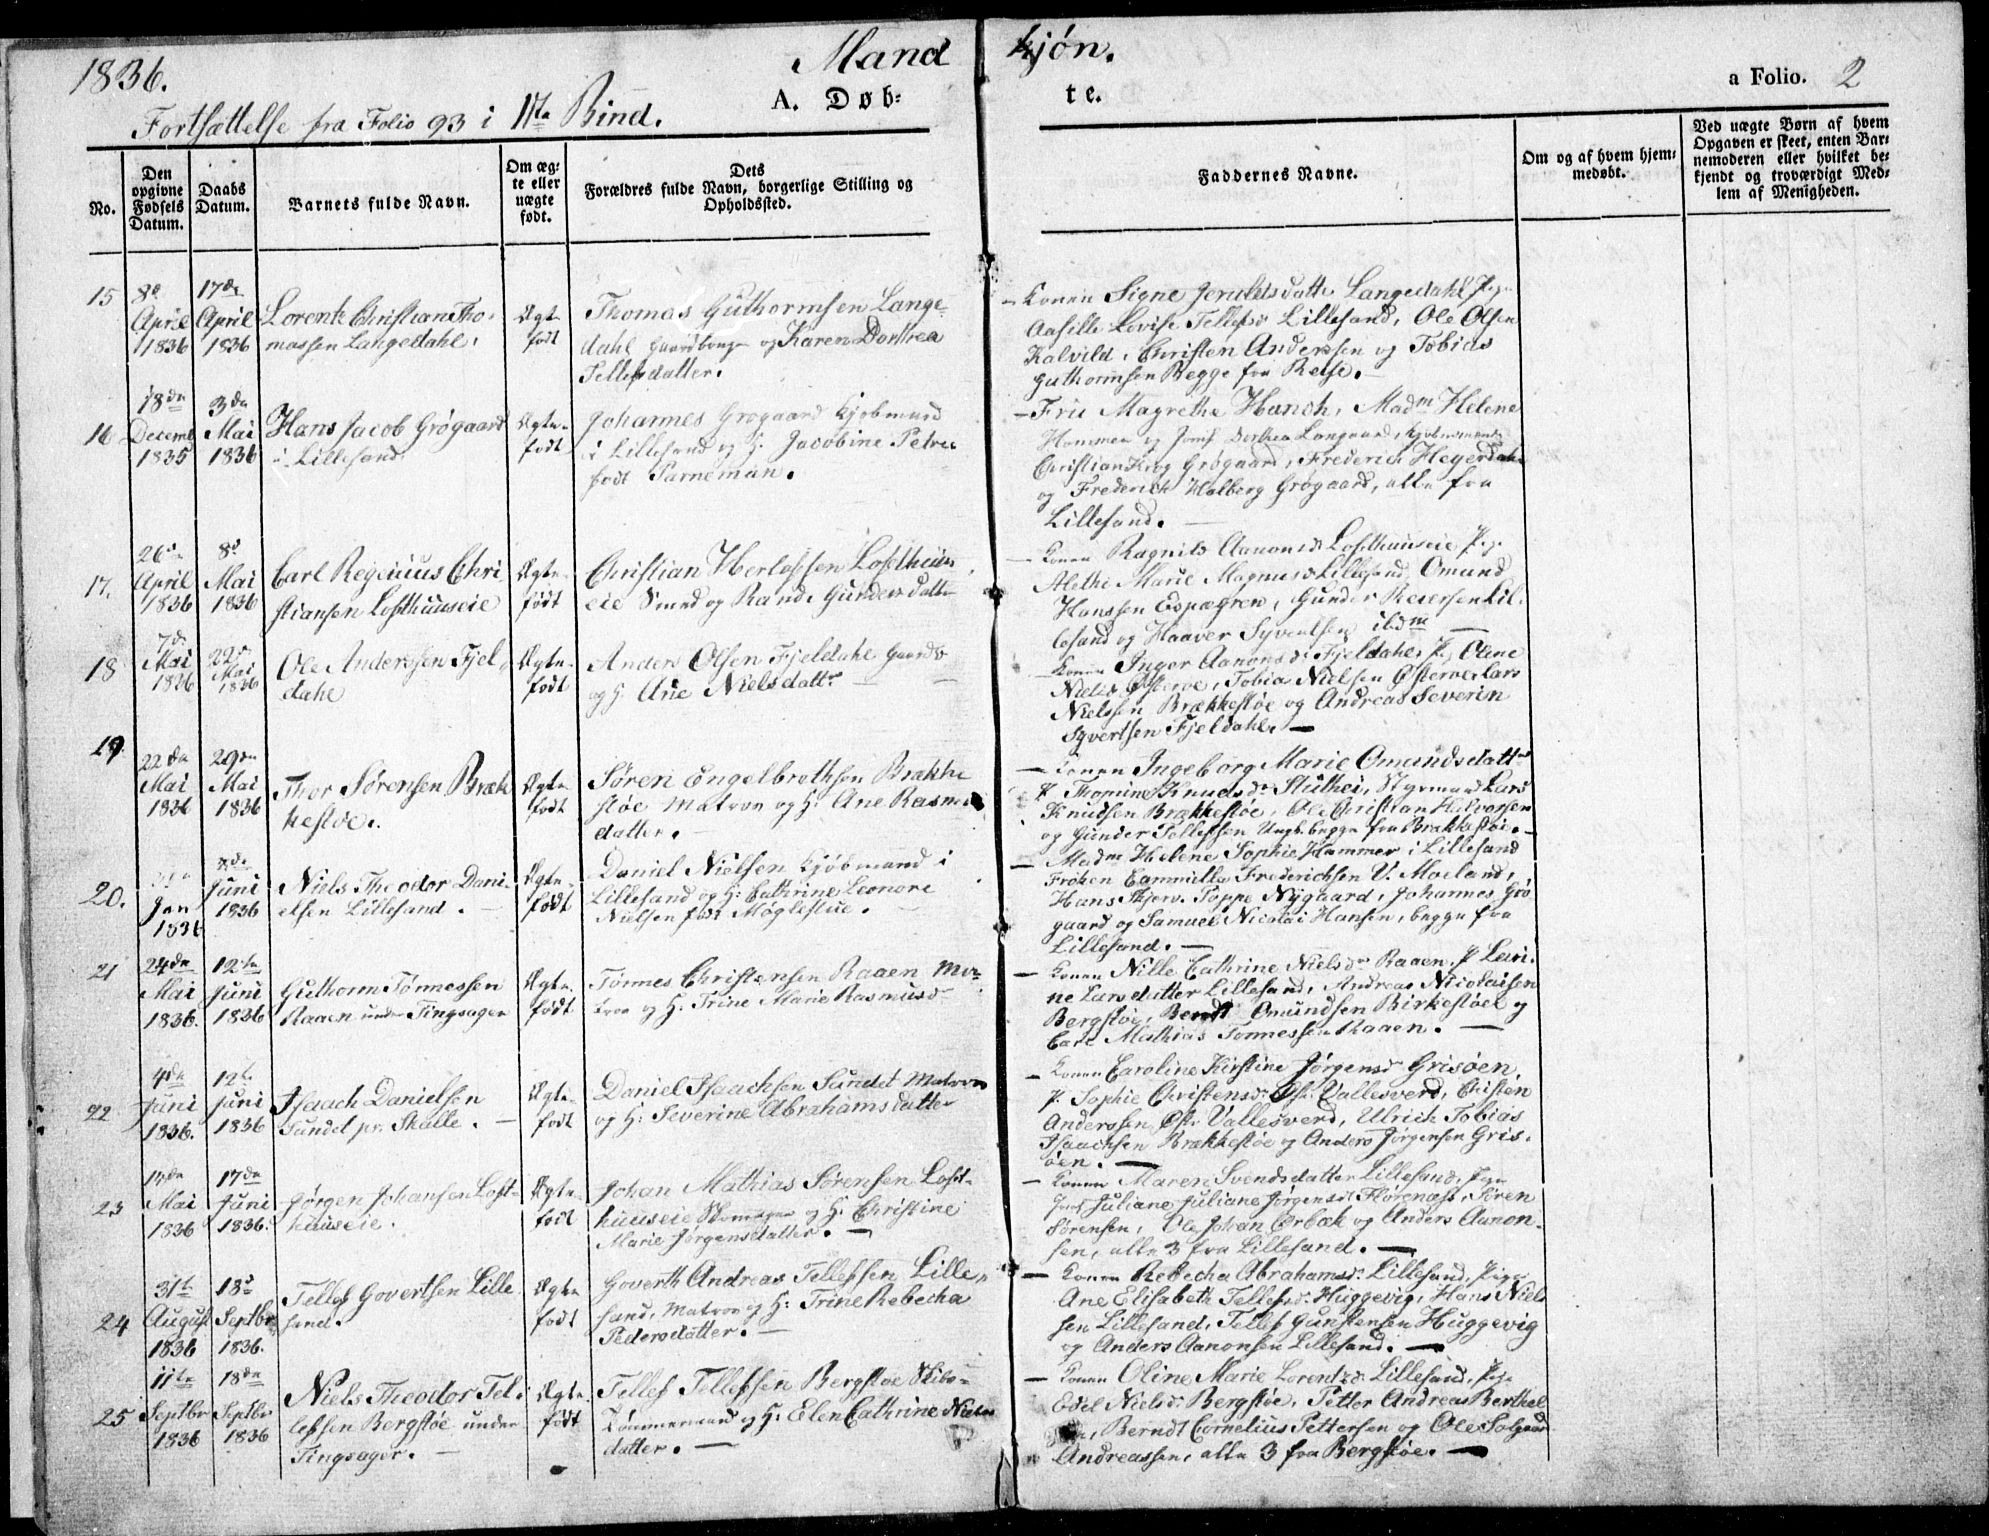 1836.
Mand kjøn.
A. Døb= te.
a Folio. 2
Fortsættelse fra Folio 93 i 1ste Bind.
No.
Den opgivne Fødsels Datum.
Daabs Datum.
Barnets fulde Navn.
Om æg= te eller uægte født.
Dets Forældres fulde Navn, borgerlige Stilling og Opholdssted.
Faddernes Navne.
Om og af hvem hjem= medøbt.
Ved uægte Børn af hvem
Opgaven er skeet, enten Bar=
nemoderen eller hvilket be=
kjendt og troværdigt Med=
lem af Menigheden.
15
8de April 1836
17de April 1836
Lorentz Christian Tho=
massen Langedahl.
Ægte født
Thomas Guthormsen Lange=
dahl Gaardbruger og Karen Dorthea
Tellefsdatter.
Konen Signe Langedahl, Pige
Lovise Tellefsd. Lillesand, Ole Olsen
Kalvild, Christen Anderssen og Tobias
Guthormsen Begge fra
16
18de Decemb 1835
3de Mai 1836
Hans Jacob Grøgaard
i Lillesand.
Ægte født
Johannes Grøgaard Kjøbmand
i Lillesand og H. Jacobine Petrea
født Parneman.
Frue Magrethe Hanch, Madm Helene
Hammer og Jomf Dorthea Langaard, Kjøbmænd
Christian Krog Grøgaard, Frederich Heyerdahl
og Frederich Holberg Grøgaard, alle fra
Lillesand.
17.
26de April 1836
8de Mai 1836
Carl Reginius Chri
stiansen Lofthuuseie
Ægte født
Christian Herlofsen Lofthuus
eie Smed og Rande Gundersdatter
Konen Ragnild Aanonsd. Lofthuuseie, Pige
Alethe Marie Magnusd. Lillesand, Omund
Hanssen Espægren, Gunder Reiersen Lil=
lesand og Haaver Syvertsen ibdm
18
7de Mai 1836
22de Mai 1836
Ole Anderssen Fjel
dahl
Ægte født
Anders Olsen Fjeldahl Gaardb
og H. Ane Nielsdatter
Konen Inger Aanonsd. Fjeldahl, P. Oline
Nielsd. Østerøe, Tobias Nielsen Østerøe Lars
Nielssen Brækkestøe og Andreas Severin
Syvertsen Fjeldahl.
19.
22de Mai 1836
29de Mai 1836
Thor Sørensen Bræk
kestøe.
Ægte født
Søren Engelbrethsen Brække
støe Matros og H. Ane Rasmus
datter.
Konen Ingeborg Marie Omundsdatter
P. Thomine Knudsd. Stuthei, Styrmand Lars
Knudsen Brækkestøe, Ole Christian Halvorsen
og Gunder Tellefsen Ungk. begge fra Brækkestøe.
20.
Jan 1836
Juni 1836
Niels Theodor Dani=
elsen Lillesand.
Ægte født
Daniel Nielsen Kjøbmand i
Lillesand og H. Cathrine Leonore
Nielsen født Møglestue.
Madm Helene Sophie Hammer i Lillesand
Frøken Cammilla Frederichsen V. Moeland,
Hans Poppe Nygaard, Johannes Grø
gaard og Samuel Nicolai Hansen, begge fra
Lillesand.
21
24de Mai 1836.
12te Juni 1836
Guthorm Tønnessen
Raaen under Tingsager
Ægte født
Tønnes Christensen Raaen Ma=
tros og H. Trine Marie Rasmusd.
Konen Nille Cathrine Nielsd. Raaen, P.
Larsdatter Lillesand, Andreas Nicolaisen
Bergstøe, Berndt Omundsen Birkestøel og
Carl Mathias Tønnessen Raaen.
22
4de Juni 1836.
12te Juni 1836
Isaach Danielsen
Sundet pr. Skalle.
Ægte født
Daniel Isaachsen Sundet Matros
og H. Severine Abrahamsdatter
Konen Caroline Kirstine Jørgensd. Grisøen,
P. Sophie Christensd. Øst. Vallesverd, Christen
Anderssen Østr Vallesverd, Ulrich Tobias
Isaachsen Brækkestøe og Anders Jørgensen Gris=
øen.
23
Mai 1836
17de Juni 1836.
Jørgen Johansen Loft=
huuseie.
Ægte født
Johan Mathias Sørensen Loft=
huuseie Skomager og H. Christine
Marie Jørgensdatter.
Konen Maren Svendsdatter Lillesand, Pige
Juliane Juliane Jørgensd. Florenæs, Søren
Sørensen, Ole Johan Ørbæk og Anders Aanon=
sen, alle 3 fra Lillesand.
24
31te August 1836
18de Septbr 1836.
Tellef Govertsen Lille
sand.
Ægte født
Goverth Andreas Tellefsen Lille=
sand, Matros og H. Trine Rebecha
Pedersdatter.
Konen Rebecha Abrahamsd. Lillesand, Pige
Ane Elisabeth Tellefsd. Huggevig, Hans Niel
sen Lillesand, Tellef Gunstensen Huggevig
og Anders Aanonsen Lillesand.
25
11te Septbr 1836
18de Septbr 1836
Niels Theodor Tel=
lefsen Bergstøe under
Tingsager.
Ægte født
Tellef Tellefsen Bergstøe Skibs=
tømmermand og H. Elen Cathrine Niels
datter.
Konen Oline Marie Lorentzd. Lillesand, Pige
Edel Nielsd. Bergstøe, Petter Andreas Berthel
sen, Berndt Cornelius Pettersen og Ole Solgaard
Andreassen, alle 3 fra Bergstøe.